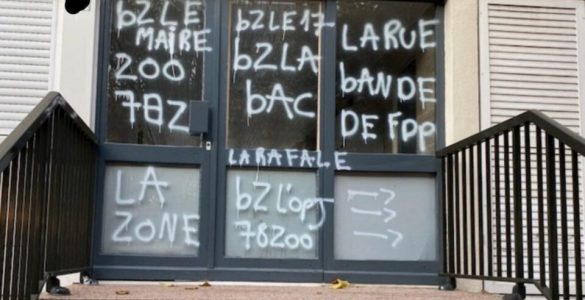 bZ LE
MAIRE
200
78Z
bZ LE 17
bZ LA
bAC
LA RUE
bANDE
DE FDP
LA RAFALE
LA
ZONE
bZ L'OPJ
78200